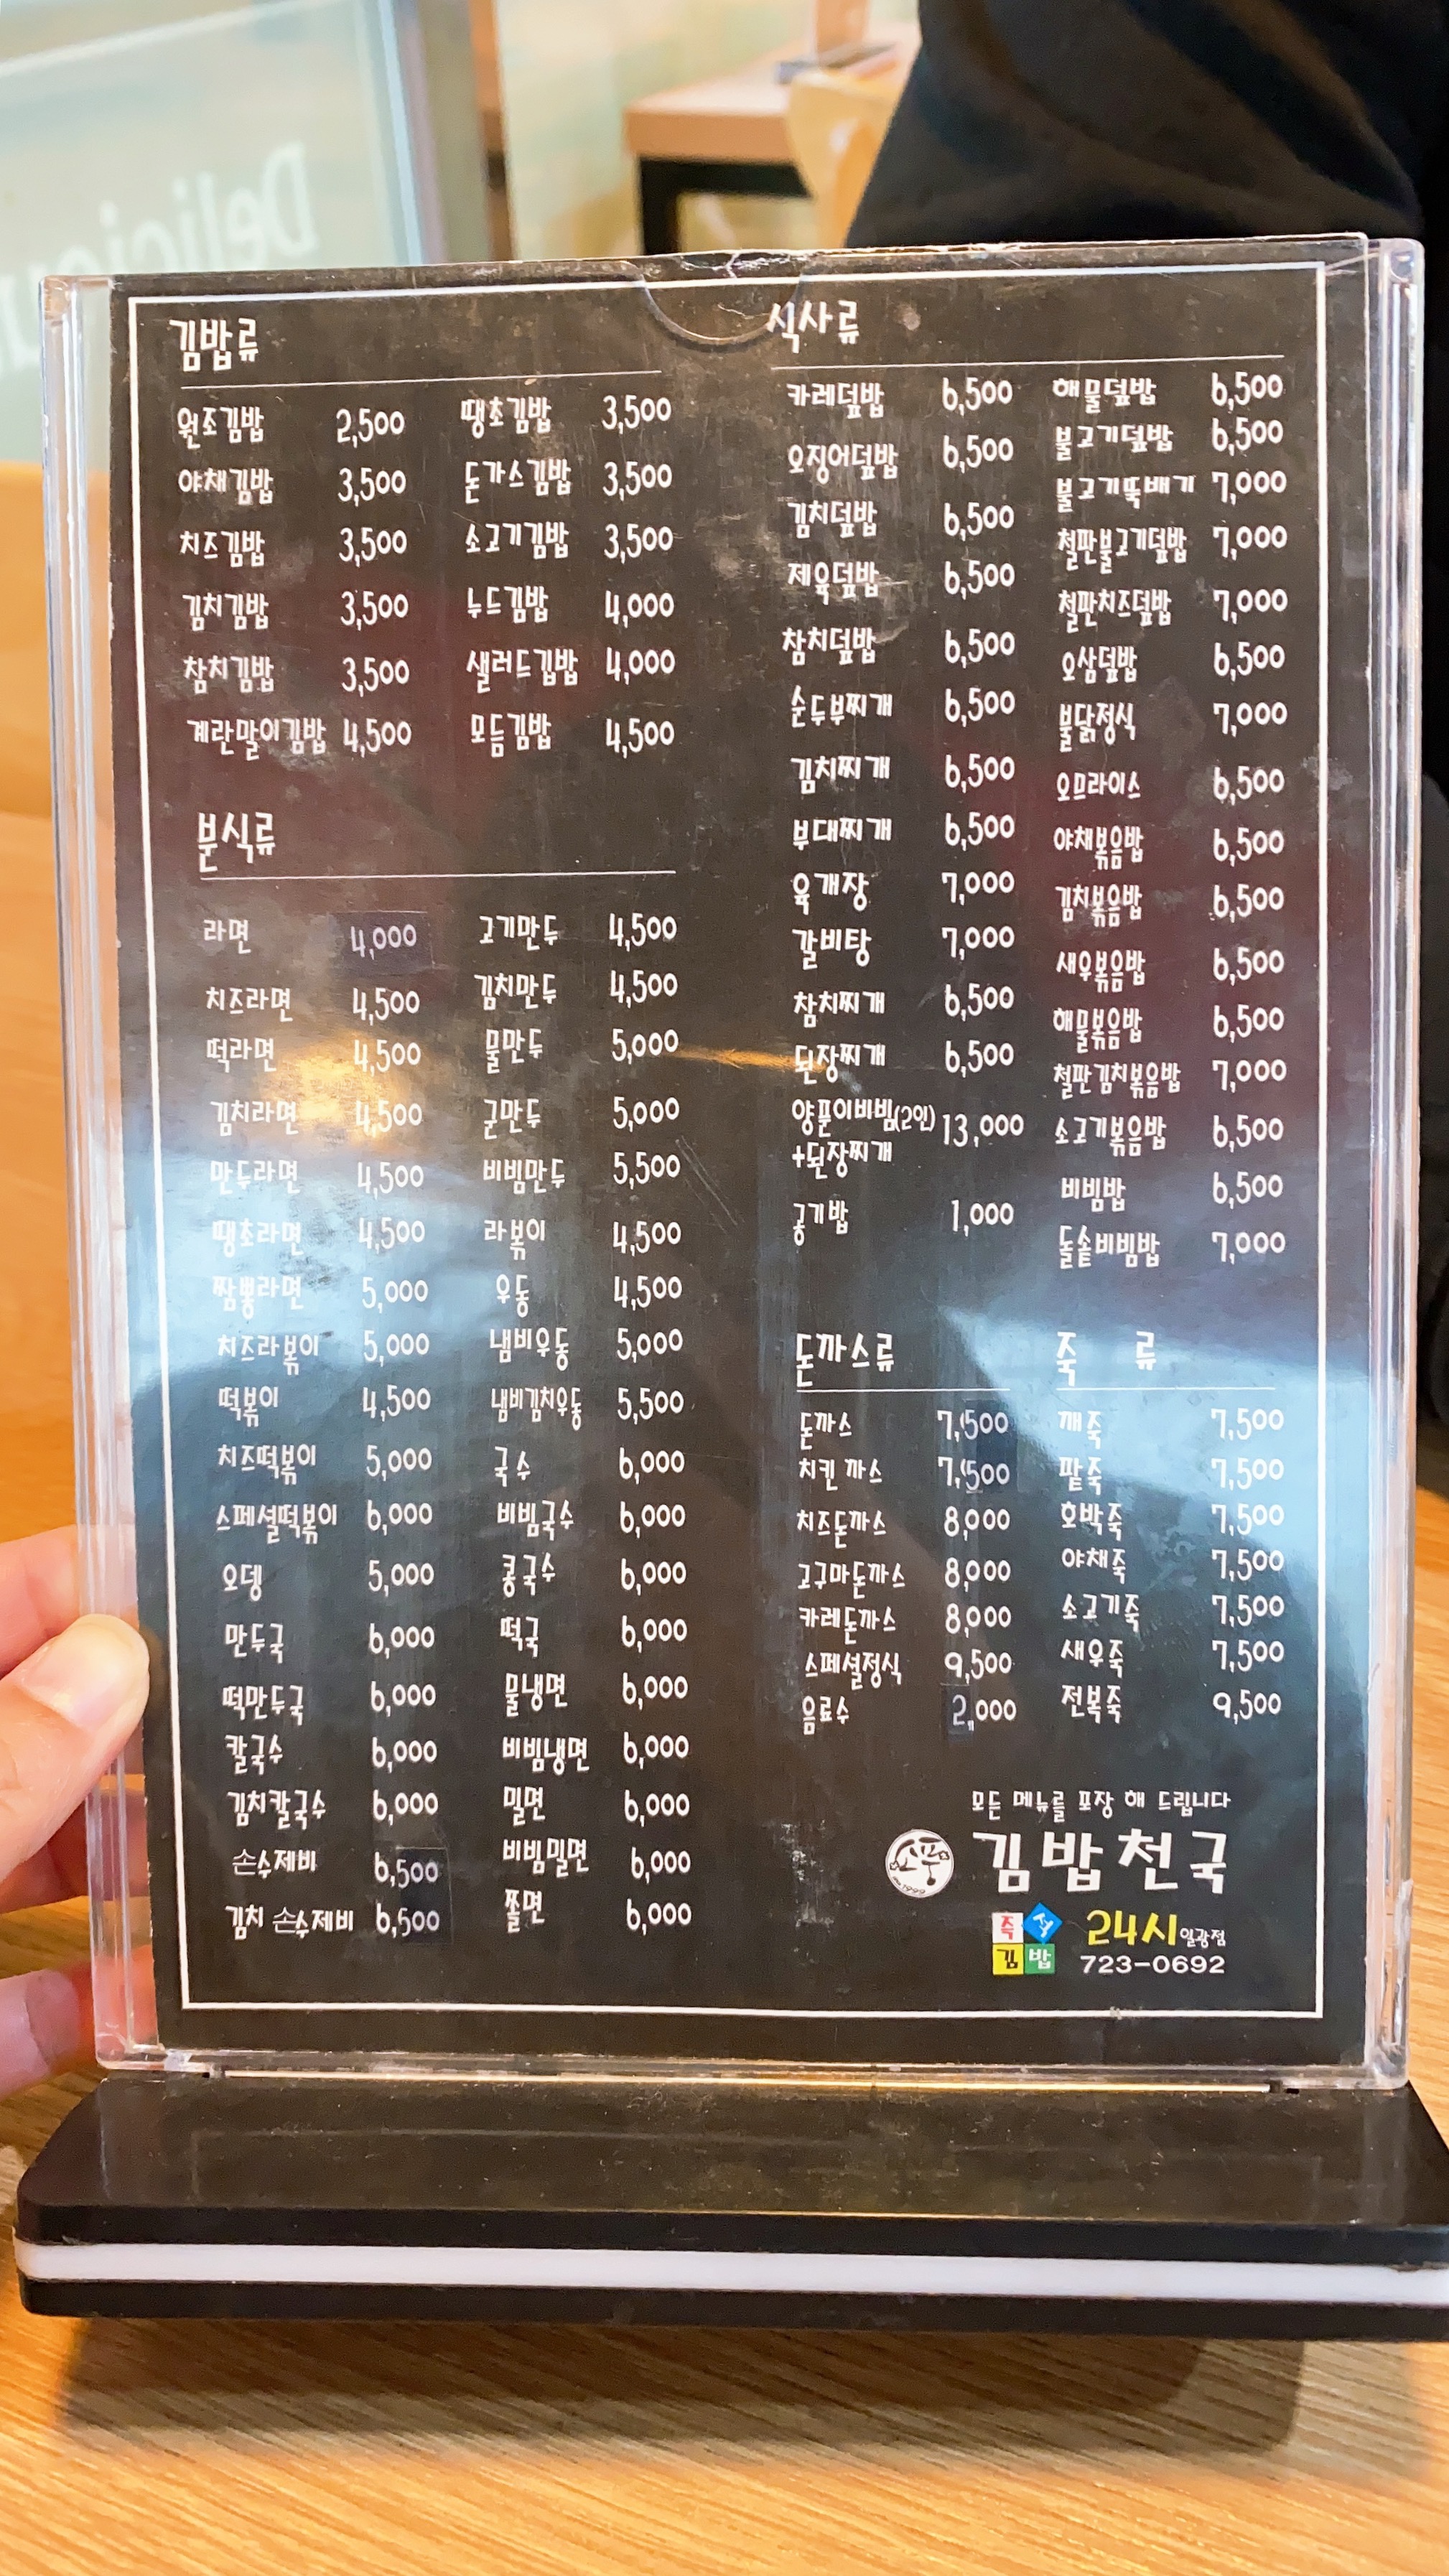 Deliciou
김밥류
원조김밥 2,500
야채김밥 3,500
치즈김밥 3,500
김치김밥 3,500
참치김밥 3,500
계란말이김밥 4,500
땡초김밥 3,500
돈가스김밥 3,500
소고기김밥 3,500
누드김밥 4,000
샐러드김밥 4,000
모듬김밥 4,500
분식류
라면 4,000
치즈라면 4,500
떡라면 4,500
김치라면 4,500
만두라면 4,500
땡초라면 4,500
짬뽕라면 5,000
치즈라볶이 5,000
떡볶이 4,500
치즈떡볶이 5,000
스페셜떡볶이 6,000
오뎅 5,000
만두국 6,000
떡만두국 6,000
칼국수 6,000
김치칼국수 6,000
손수제비 6,500
김치 손수제비 6,500
고기만두 4,500
김치만두 4,500
물만두 5,000
군만두 5,000
비빔만두 5,500
라볶이 4,500
우동 4,500
냄비우동 5,000
냄비김치우동 5,500
국수 6,000
비빔국수 6,000
콩국수 6,000
떡국 6,000
물냉면 6,000
비빔냉면 6,000
밀면 6,000
비빔밀면 6,000
쫄면 6,000
식사류
카레덮밥 6,500
오징어덮밥 6,500
김치덮밥 6,500
제육덮밥 6,500
참치덮밥 6,500
순두부찌개 6,500
김치찌개 6,500
부대찌개 6,500
육개장 7,000
갈비탕 7,000
참치찌개 6,500
된장찌개 6,500
양푼이비빔(2인) 13,000
+된장찌개
공기밥 1,000
해물덮밥 6,500
불고기덮밥 6,500
불고기뚝배기 7,000
철판불고기덮밥 7,000
철판치즈덮밥 7,000
오삼덮밥 6,500
불닭정식 7,000
오므라이스 6,500
야채볶음밥 6,500
김치볶음밥 6,500
새우볶음밥 6,500
해물볶음밥 6,500
철판김치볶음밥 7,000
소고기볶음밥 6,500
비빔밥 6,500
돌솥비빔밥 7,000
돈까스류
돈까스 7,500
치킨까스 7,500
치즈돈까스 8,000
고구마돈까스 8,000
카레돈까스 8,000
스페셜정식 9,500
음료수 2,000
죽 류
깨죽 7,500
팥죽 7,500
호박죽 7,500
야채죽 7,500
소고기죽 7,500
새우죽 7,500
전복죽 9,500
모든 메뉴를 포장 해 드립니다
김밥천국
즉석
김밥
24시 일광점
723-0692